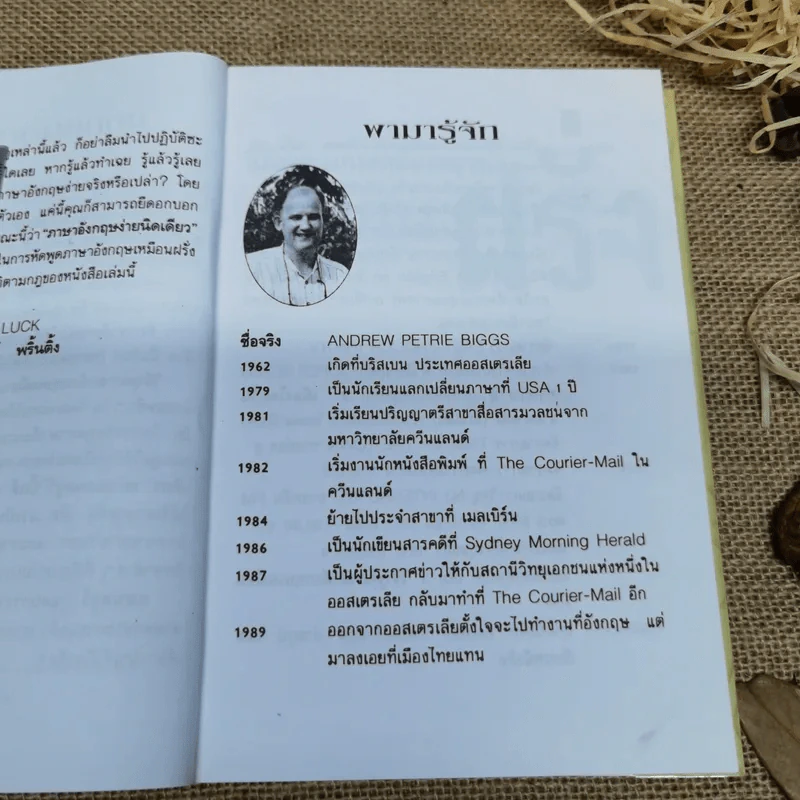 เหล่านี้แล้ว ก็อย่าลืมนำไปปฏิบัติซะ
หากรู้แล้วทำเฉย รู้แล้วรู้เลย
ภาษาอังกฤษง่ายจริงหรือเปล่า? โดย
ตัวเอง แค่นี้คุณก็สามารถยืดอกบอก
ณะนี้ว่า "ภาษาอังกฤษง่ายนิดเดียว"
ในการหัดพูดภาษาอังกฤษเหมือนฝรั่ง
ตามกฎของหนังสือเล่มนี้
LUCK
พริ้นติ้ง
พามารู้จัก
ชื่อจริง ANDREW PETRIE BIGGS
1962 เกิดที่บริสเบน ประเทศออสเตรเลีย
1979 เป็นนักเรียนแลกเปลี่ยนภาษาที่ USA 1 ปี
1981 เริ่มเรียนปริญญาตรีสาขาสื่อสารมวลชนจาก
มหาวิทยาลัยควีนแลนด์
1982 เริ่มงานนักหนังสือพิมพ์ ที่ The Courier-Mail ใน
ควีนแลนด์
1984 ย้ายไปประจำสาขาที่ เมลเบิร์น
1986 เป็นนักเขียนสารคดีที่ Sydney Morning Herald
1987 เป็นผู้ประกาศข่าวให้กับสถานีวิทยุเอกชนแห่งหนึ่งใน
ออสเตรเลีย กลับมาทำที่ The Courier-Mail อีก
1989 ออกจากออสเตรเลียตั้งใจจะไปทำงานที่อังกฤษ แต่
มาลงเอยที่เมืองไทยแทน